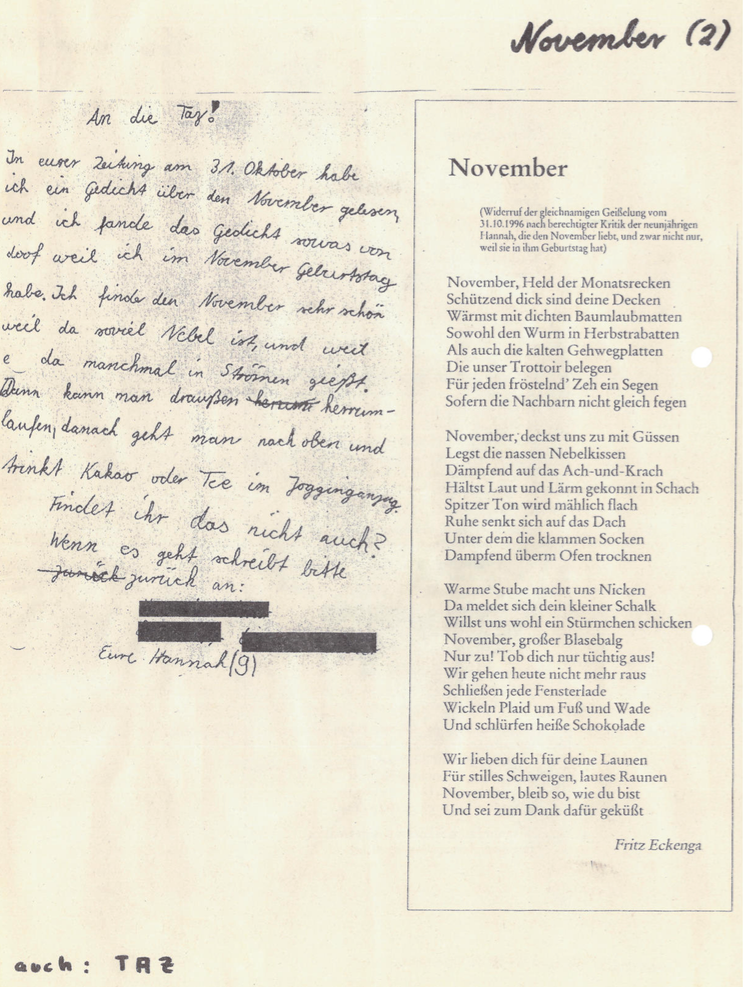 November (2)
An die Taz!
In eurer Zeitung am 31. Oktober habe
ich ein Gedicht über den November gelesen,
und ich fande das Gedicht sowas von
doof weil ich im November Geburtstag
habe. Ich finde den November sehr schön
weil da soviel Nebel ist, und weil
e da manchmal in Strömen gießt.
Dann kann man draußen herum herrum-
laufen, danach geht man nach oben und
trinkt Kakao oder Tee im Jogginganzug.
Findet ihr das nicht auch?
Wenn es geht schreibt bitte
zurück zurück an:
Eure Hannah (9)
November
(Widerruf der gleichnamigen Geißelung vom
31.10.1996 nach berechtigter Kritik der neunjährigen
Hannah, die den November liebt, und zwar nicht nur,
weil sie in ihm Geburtstag hat)
November, Held der Monatsrecken
Schützend dick sind deine Decken
Wärmst mit dichten Baumlaubmatten
Sowohl den Wurm in Herbstrabatten
Als auch die kalten Gehwegplatten
Die unser Trottoir belegen
Für jeden fröstelnd' Zeh ein Segen
Sofern die Nachbarn nicht gleich fegen
November, deckst uns zu mit Güssen
Legst die nassen Nebelkissen
Dämpfend auf das Ach-und-Krach
Hältst Laut und Lärm gekonnt in Schach
Spitzer Ton wird mählich flach
Ruhe senkt sich auf das Dach
Unter dem die klammen Socken
Dampfend überm Ofen trocknen
Warme Stube macht uns Nicken
Da meldet sich dein kleiner Schalk
Willst uns wohl ein Stürmchen schicken
November, großer Blasebalg
Nur zu! Tob dich nur tüchtig aus!
Wir gehen heute nicht mehr raus
Schließen jede Fensterlade
Wickeln Plaid um Fuß und Wade
Und schlürfen heiße Schokolade
Wir lieben dich für deine Launen
Für stilles Schweigen, lautes Raunen
November, bleib so, wie du bist
Und sei zum Dank dafür geküßt
Fritz Eckenga
auch: TAZ